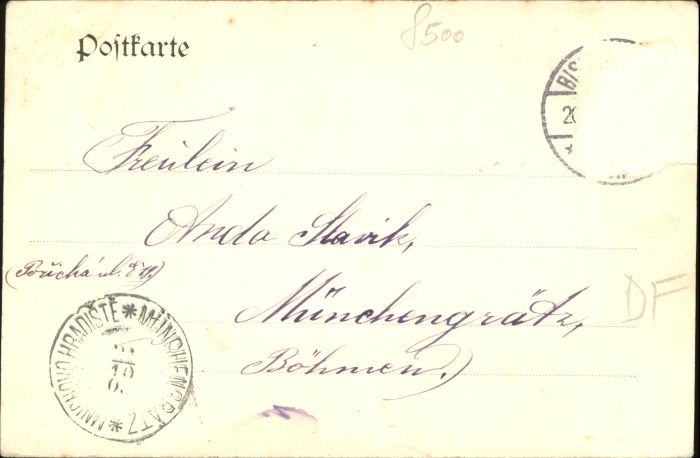 Postkarte
8500
B/S
20
Freulein
Anda Slavik,
Münchengrätz,
DF
Böhmen.)
MNICHOVO HRADIŠTĚ * MÜNCHENGRÄTZ *
10